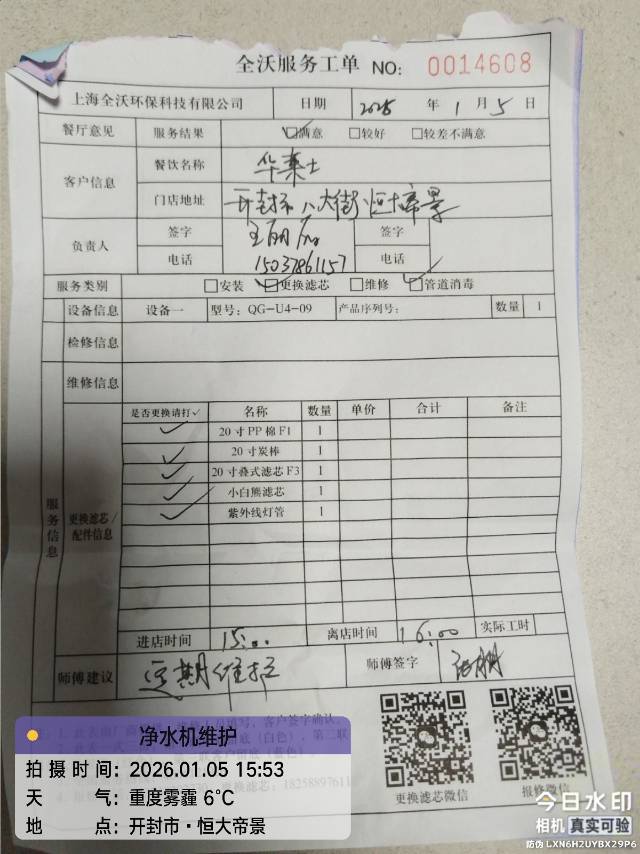 全沃服务工单 NO: 0014608
上海全沃环保科技有限公司 日期 年 1 月 5 日
餐厅意见 服务结果 ☑满意 □较好 □较差不满意
客户信息 餐饮名称 华莱士
门店地址 开封市八大街恒大帝景
负责人 签字 签字
电话 15037861157 电话
服务类别 □安装 ☑更换滤芯 □维修 ☑管道消毒
设备信息 设备一 型号: QG-U4-09 产品序列号: 数量 1
检修信息
维修信息
服务信息 更换滤芯/配件信息
是否更换请打✓ 名称 数量 单价 合计 备注
✓ 20寸PP棉F1 1
✓ 20寸炭棒 1
✓ 20寸叠式滤芯F3 1
✓ 小白熊滤芯 1
✓ 紫外线灯管 1
进店时间 15:00 离店时间 16:00 实际工时
师傅建议 定期维护 师傅签字
更换滤芯微信 报修微信
净水机维护
拍摄时间: 2026.01.05 15:53
天气: 重度雾霾 6°C
地点: 开封市·恒大帝景
今日水印
相机 真实可验
防伪 LXN6H2UYBX29P6